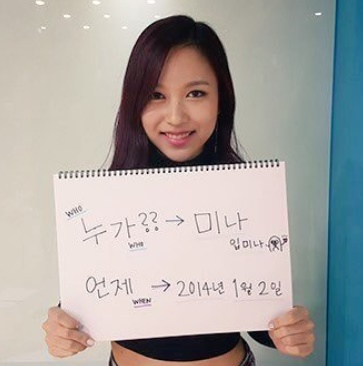 WHO
누가?? → 미나
WHO
입미나
언제 → 2014년 1월 2일
WHEN